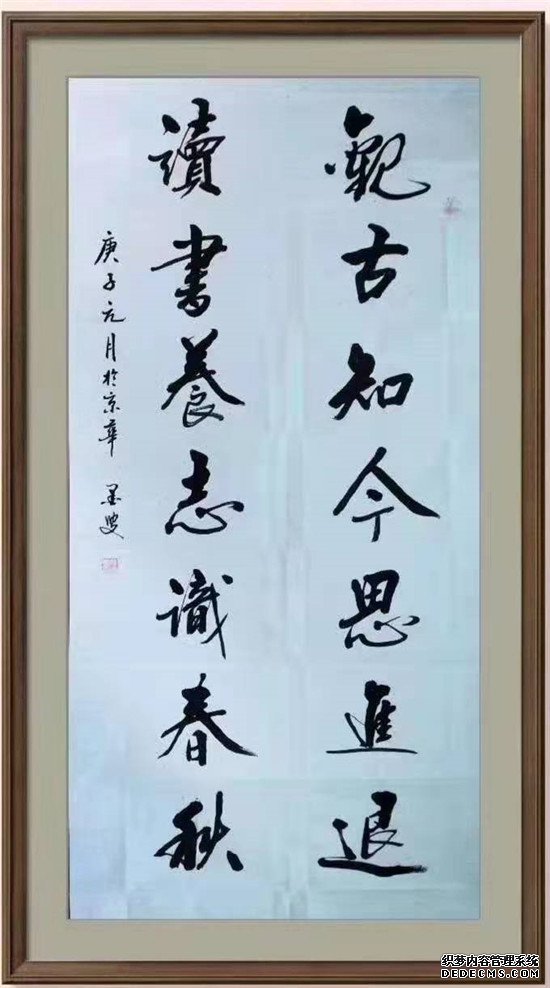 觀古知今思進退
讀書養志識春秋
庚子元月於京華 墨叟
织梦内容管理系统
DEDECMS.COM